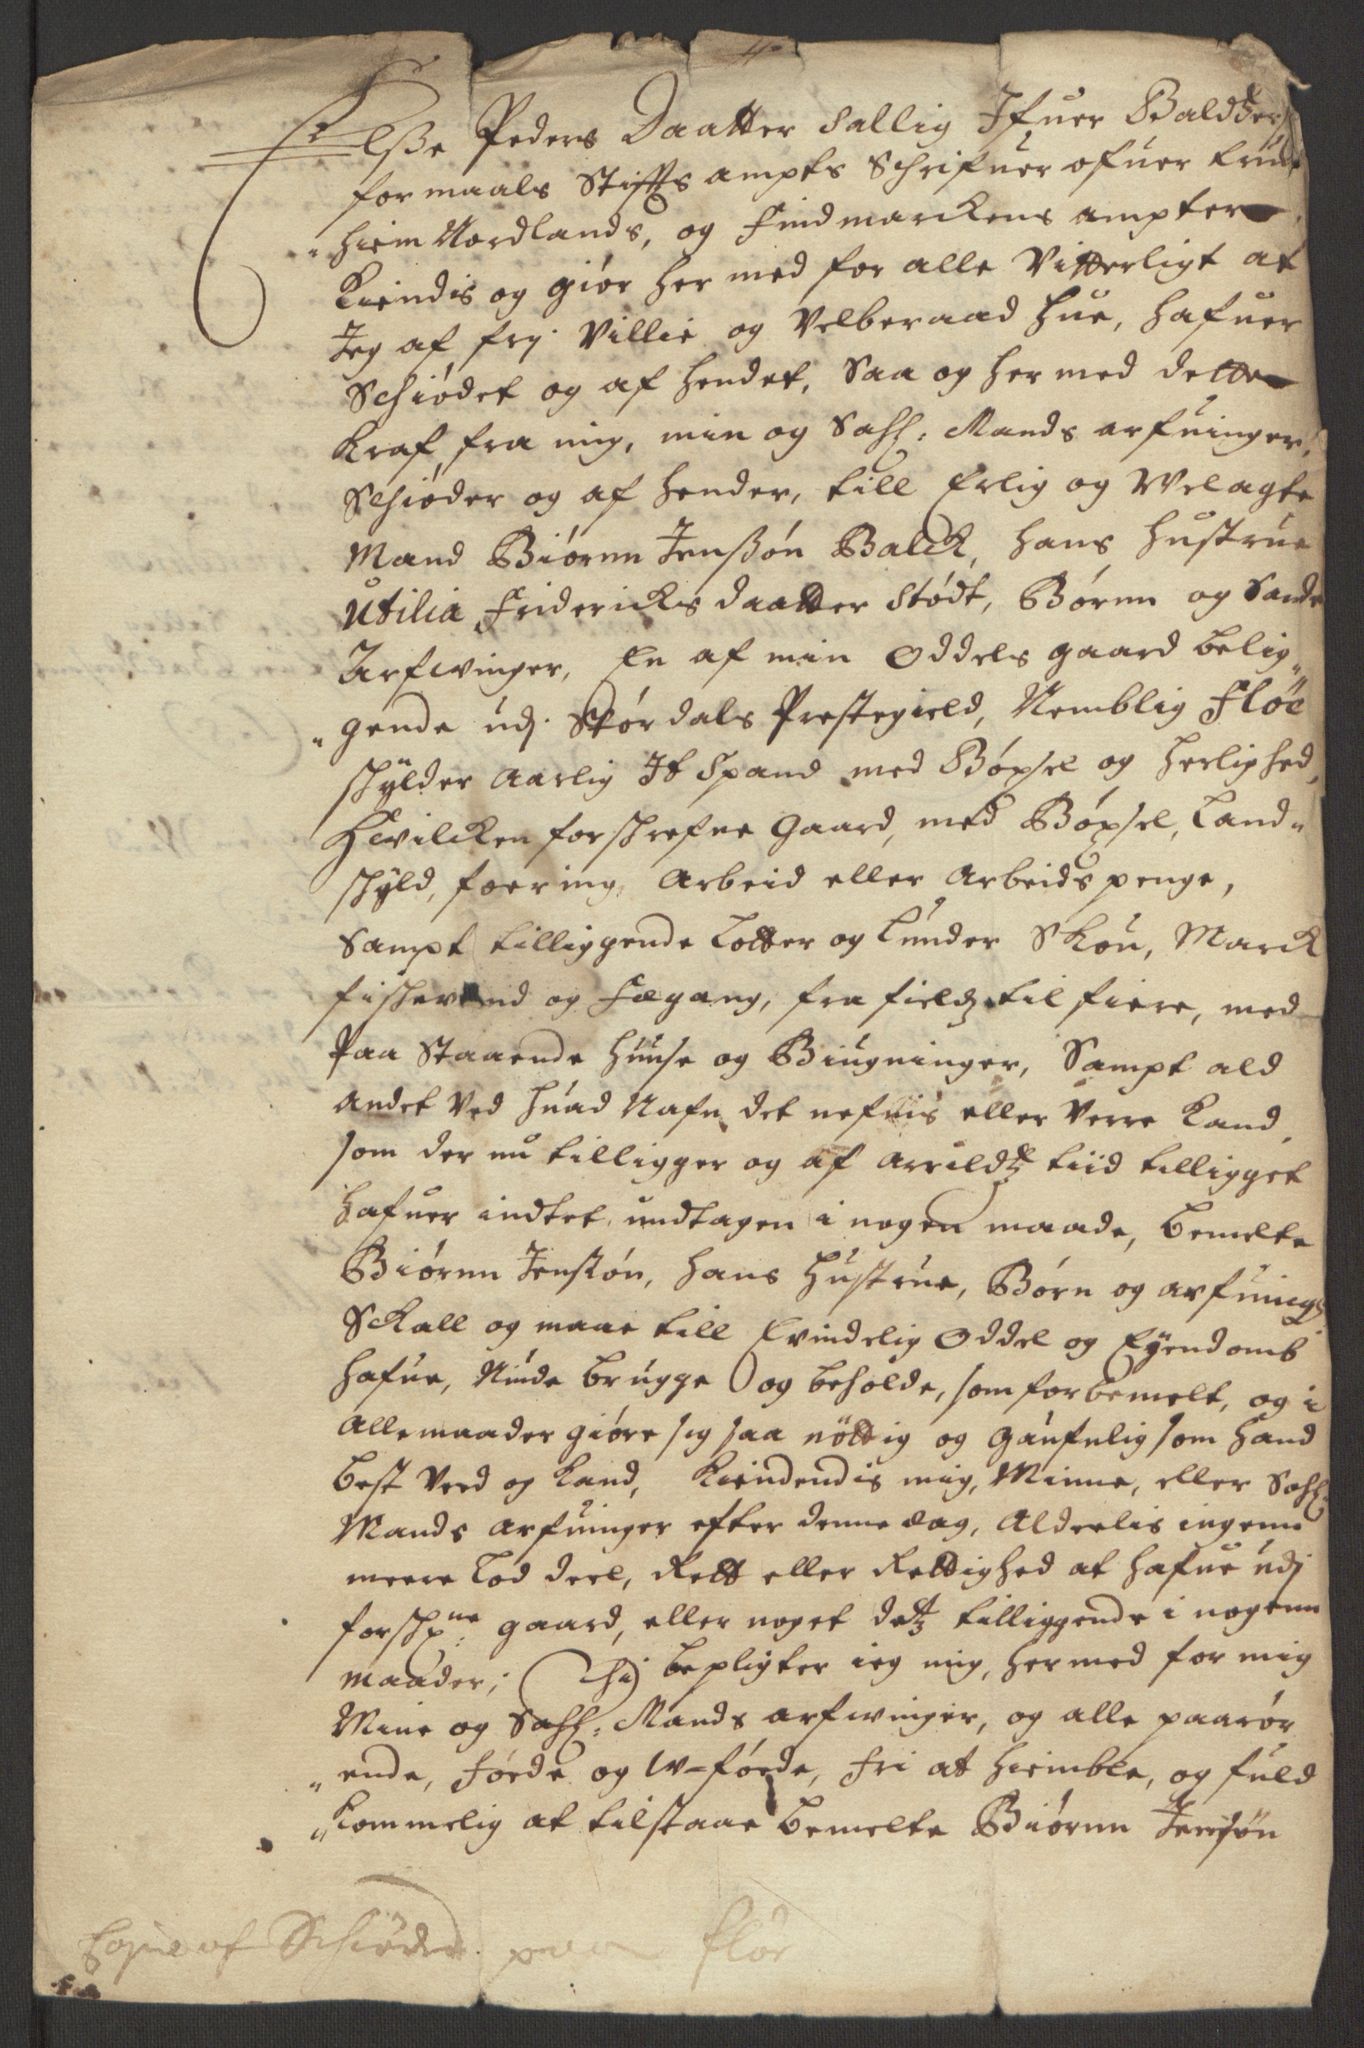 Elße Peders Daatter Sallig Ifuer Baldtzers
formaals Stiffts ampts Schrifuer ofuer trund
"hiem Nordlands, og Findmarckens ampter
Kiendis og giør her med for alle Vitterligt at
Jeg af frj Villie og Velberaad Hue, hafuer
Schiødet og af hendet, Saa og her med dette
Kraf fra mig, min og Sahl: Mands arfuinger,
Schiøder og af hender, till Erlig og Welagte
Mand Biørnn Jenßøn Balck, hans Hustrue
Utilia Fridericksdaatter Stødt, Børnn og Sande
Arfwinger, En af min Oddels gaard belig"
"gende udj Størdals Prestegield, Nemblig Floe
schylder Aarlig It Spand med Bøxsel og herlighed,
Hvilcken forschrefne Gaard, med Bøxsel, Land"
schyld, foering, Arbeid eller Arbeidspenge,
Sampt tilliggende Lotter og Lunder Skou, Marck
fischevand og Fægang, fra field til fiere, med
Paa Staaende Huuse og Biugninger, Sampt ald
andet Ved Huad Nafn det nefnis eller Verre Kand,
som der nu tilligger og af Arrildtz tiid tilligget
hafuer indtet undtagen i nogen maade, bemelte
Biørnn Jensøn, hans Hustrue, Børn og arfuing:
Schall og maae till Evindelig Oddel og Eyendomb
hafue, Niude brugge og beholde, som forbemelt, og i
Alle maader giøre sig saa nøttig og gaufnlig som hand
best Veed og Kand, Kiendendis mig, Minne, eller Sahl:
Mands Arfuinger efter denne dag, Alderlis ingenn
meere Lod deel, Rett eller Rettighed at hafue udj
forschne gaard, eller noget detz tilliggende i nogenn
maader; Thj bepligter ieg mig, hermed for mig
Mine og Sahl: Mands arfwinger, og alle paarør
"ende, føede og W=føede, frj at hiemble, og fuld
"Kommelig at tilstaae bemelte Biørnn Jensøn
Copie af Schiøde paa Floe